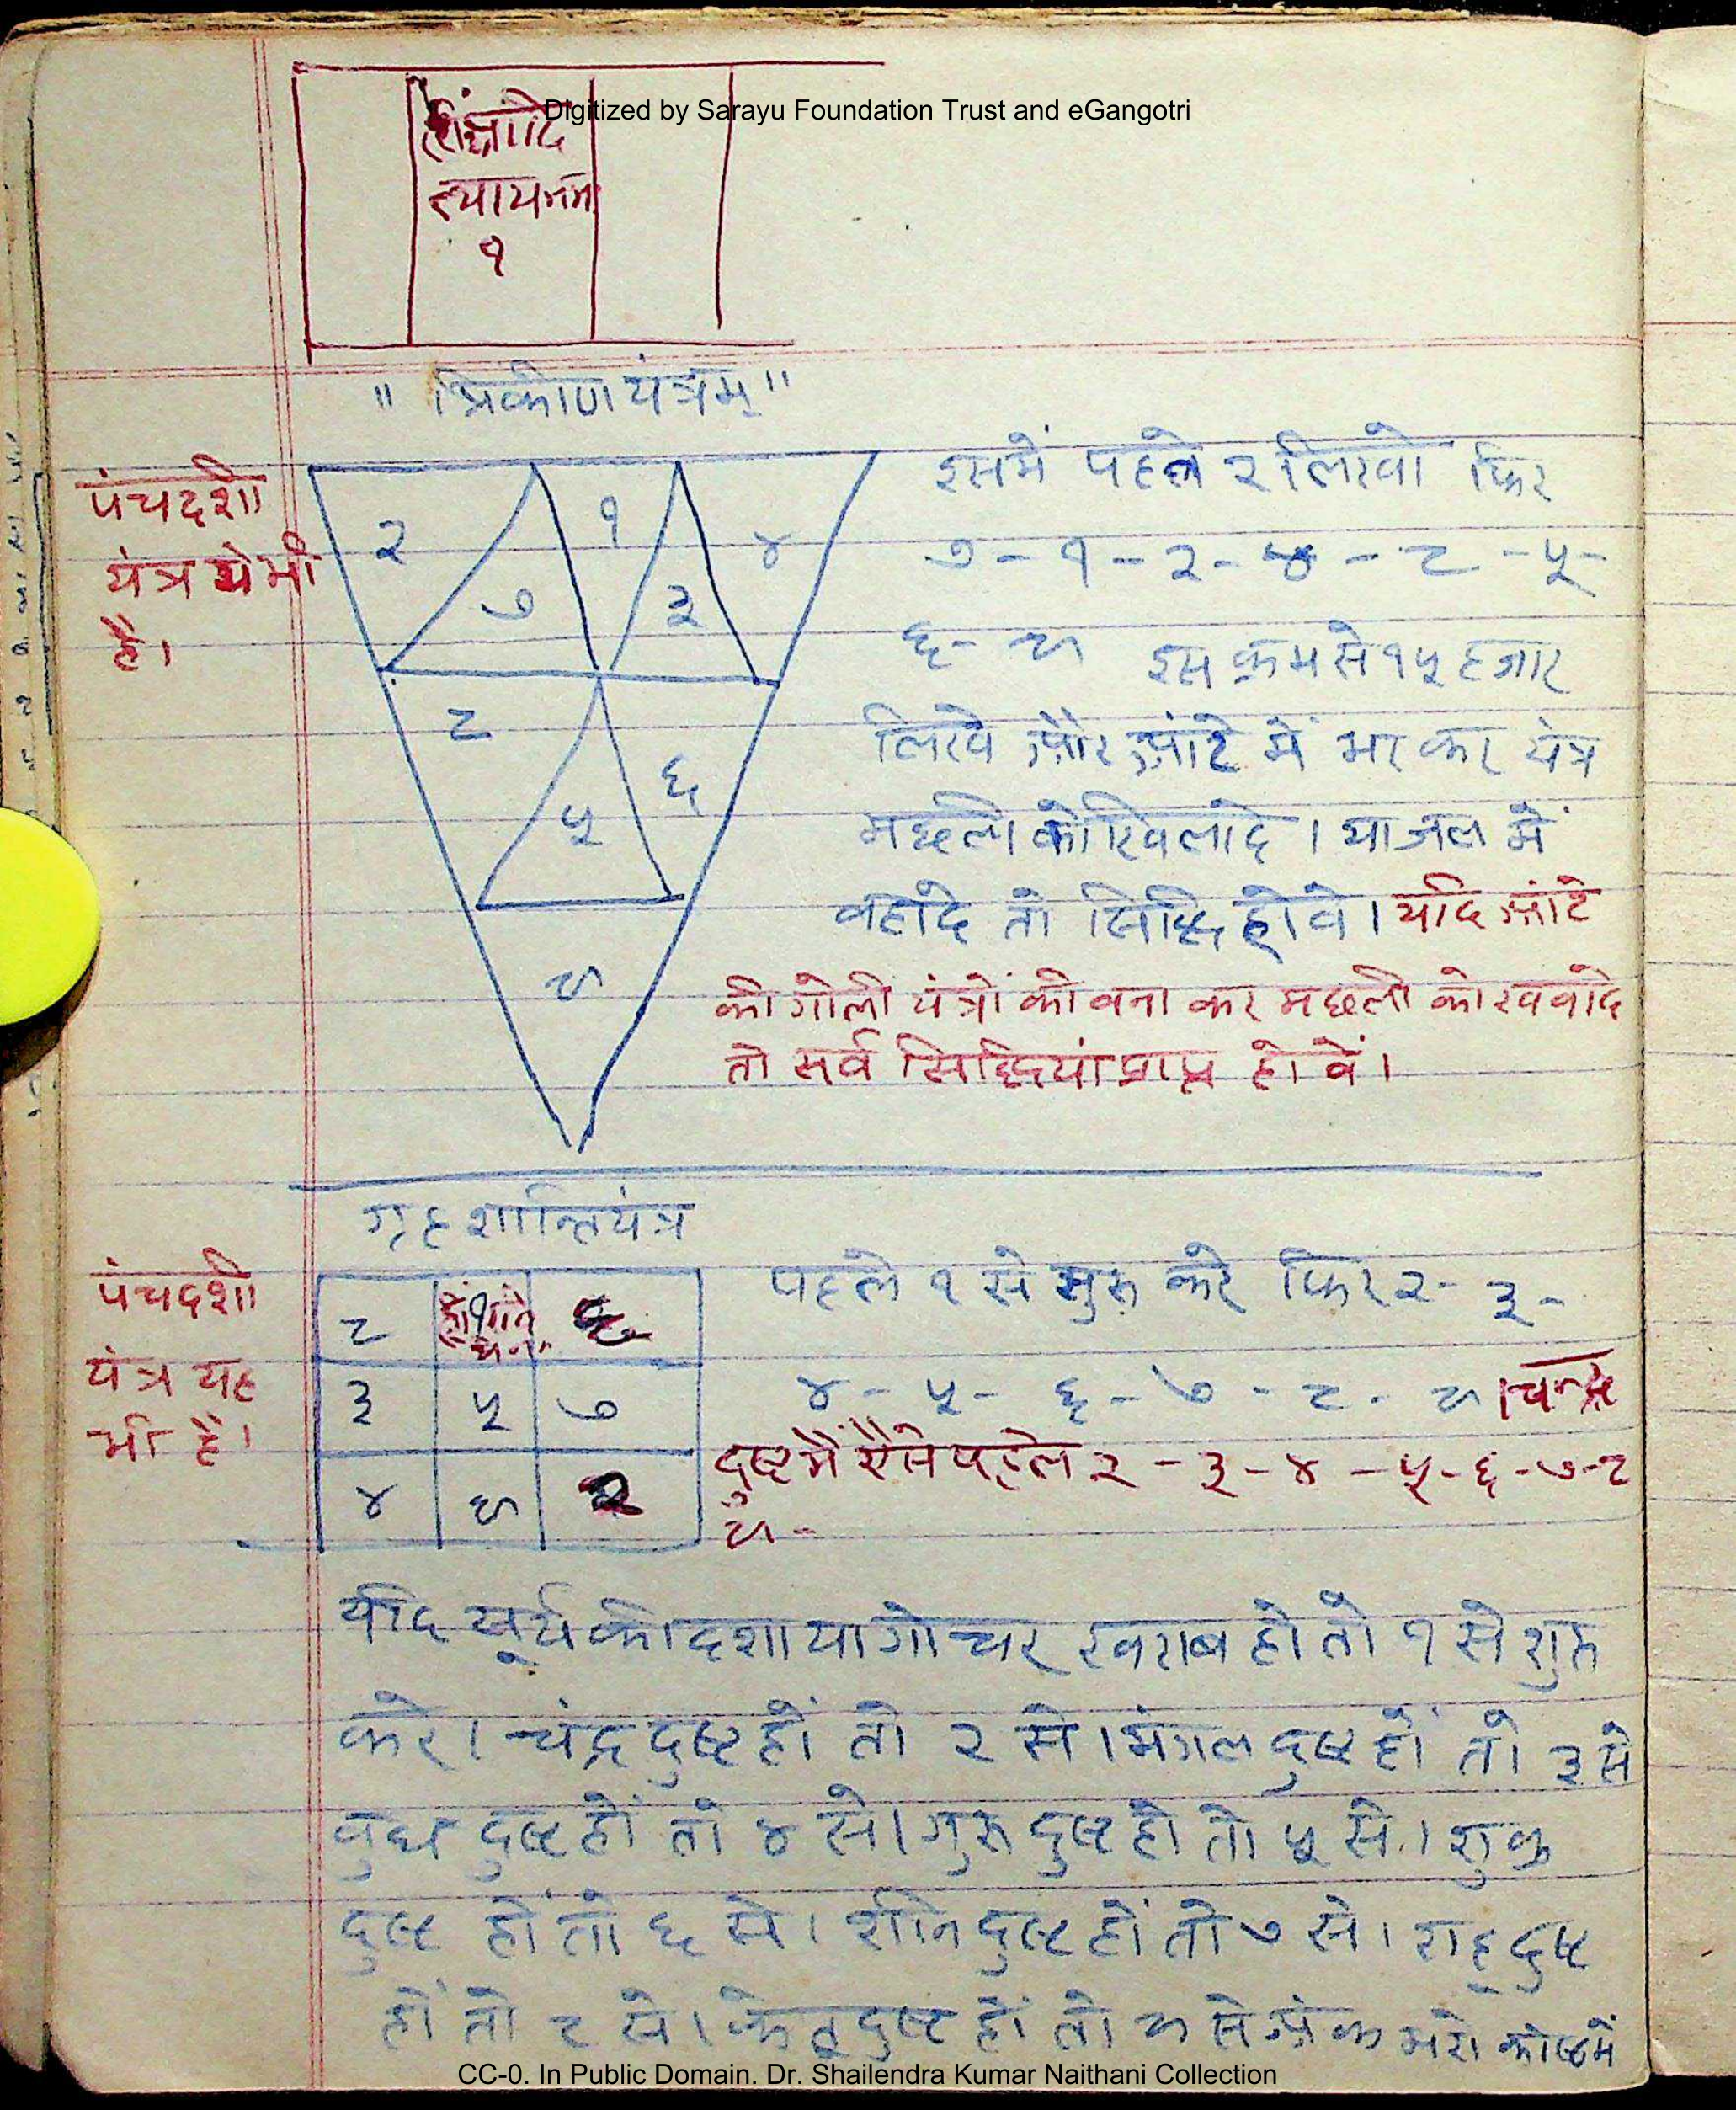 Digitized by Sarayu Foundation Trust and eGangotri
१
" त्रिकोण यंत्रम् "
पंचदशी
यंत्र ये भी
है।
२ १ ४
७ ३
८
५ ६
९
इसमें पहले २ लिखो फिर
७ - १ - २ - ४ - ८ - ५ -
६ - ९ इस क्रम से १५ हजार
लिखे और आटे में भर कर यंत्र
मछली को खिलादे । या जल में
वहादे तो सिद्धि होवे । यदि आटे
की गोली यंत्रों की वना कर मछली को खवादे
तो सर्व सिद्धियां प्राप्त होवें ।
ग्रह शान्ति यंत्र
पंचदशी
यंत्र यह
भी है।
८ १ ६
३ ५ ७
४ ९ २
पहले १ से सुरु करे फिर २ - ३ -
४ - ५ - ६ - ७ - ८ - ९ । चन्द्र
दुष्ट में ऐसे पहले २ - ३ - ४ - ५ - ६ - ७ - ८
९ -
यदि सूर्य की दशा या गोचर खराब हो तो १ से शुरु
करे । चंद्र दुष्ट हों तो २ से । मंगल दुष्ट हों तो ३ से
वुध दुष्ट हों तो ४ से । गुरु दुष्ट हो तो ५ से । शुक्र
दुष्ट हों तो ६ से । शनि दुष्ट हों तो ७ से । राहू दुष्ट
हों तो ८ से । केतू दुष्ट हों तो ९ से अंक भरो कोष्ठ में
CC-0. In Public Domain. Dr. Shailendra Kumar Naithani Collection